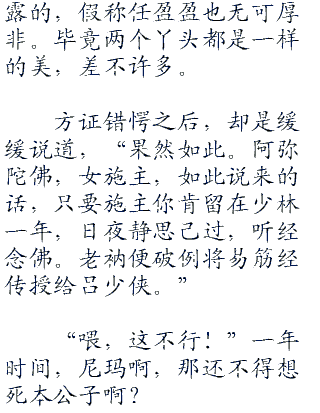 露的，假称任盈盈也无可厚
非。毕竟两个丫头都是一样
的美，差不许多。
方证错愕之后，却是缓
缓说道，“果然如此。阿弥
陀佛，女施主，如此说来的
话，只要施主你肯留在少林
一年，日夜静思己过，听经
念佛。老衲便破例将易筋经
传授给吕少侠。”
“喂，这不行！”一年
时间，尼玛啊，那还不得想
死本公子啊？